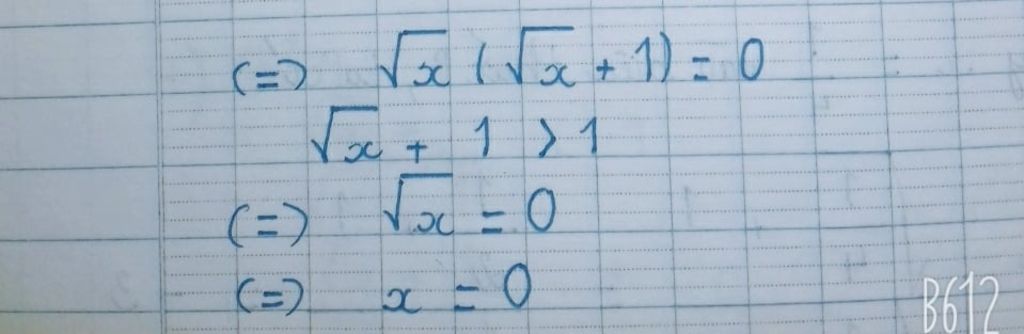 (=) √x (√x + 1) = 0
√x + 1 > 1
(=) √x = 0
(=) x = 0
B612